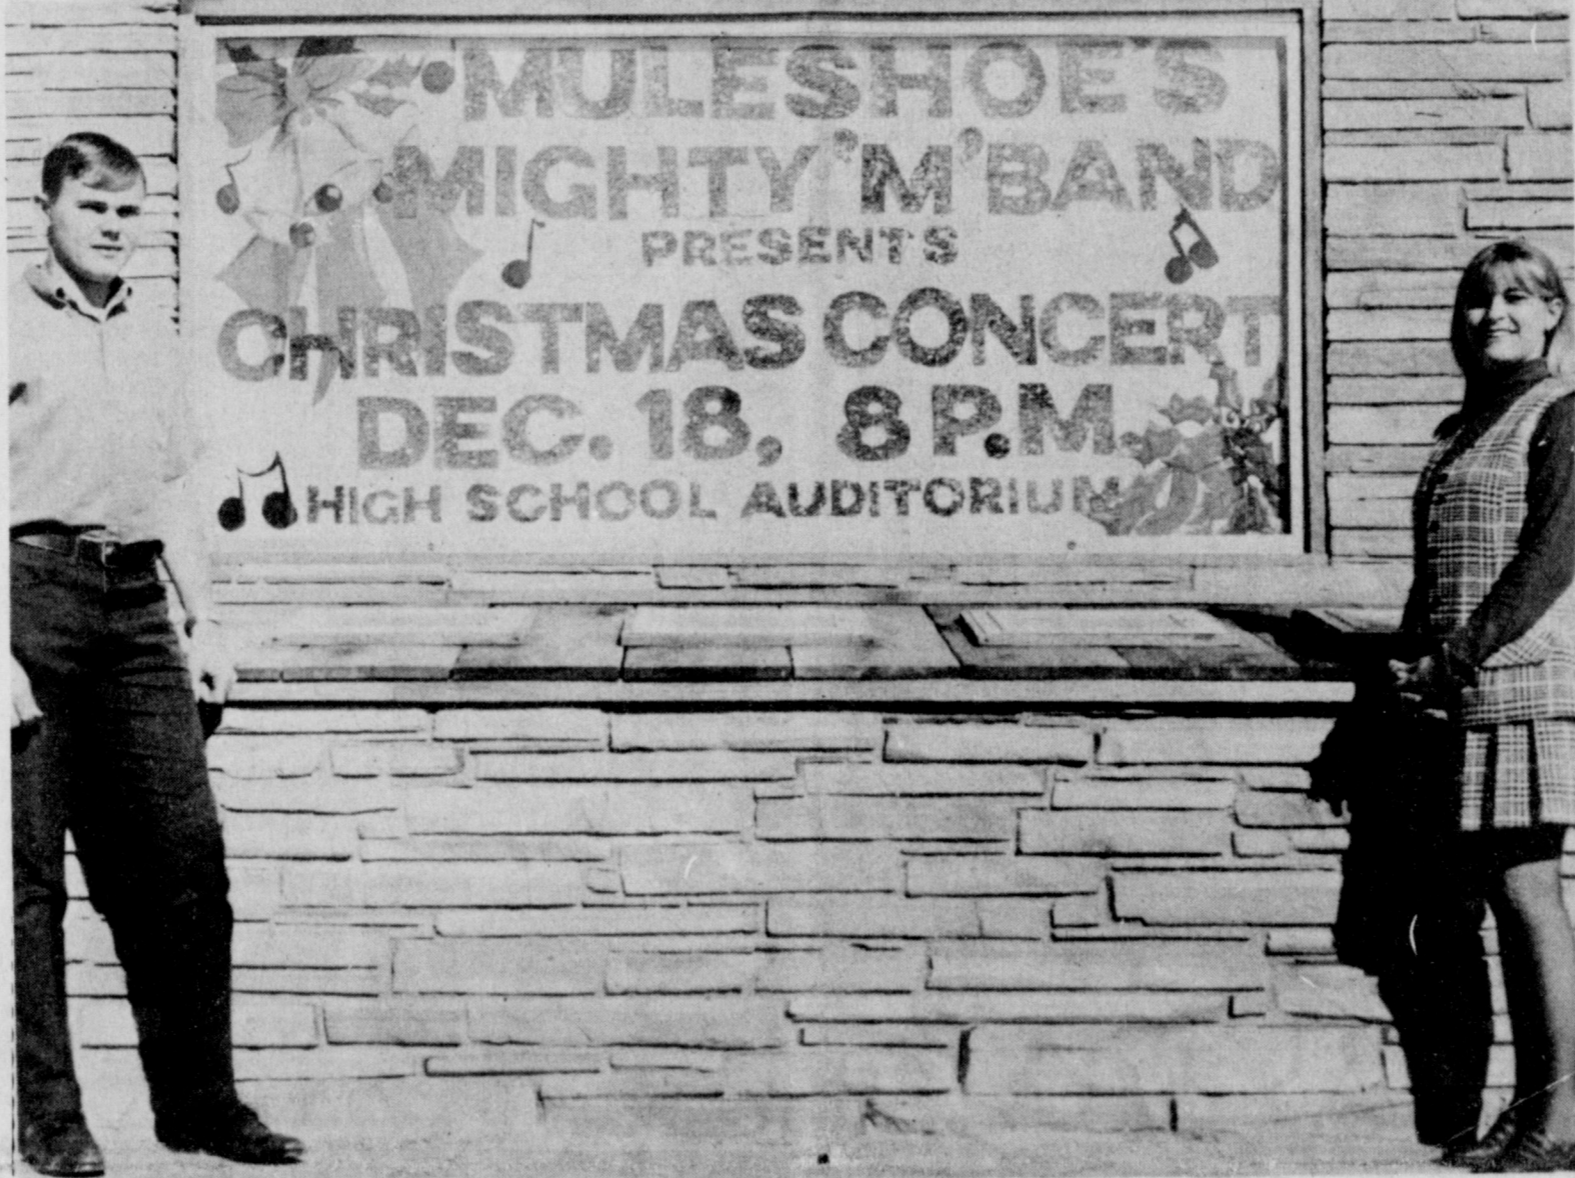 MULESHOE'S
MIGHTY 'M' BAND
PRESENTS
CHRISTMAS CONCERT
DEC. 18, 8 P.M.
HIGH SCHOOL AUDITORIUM